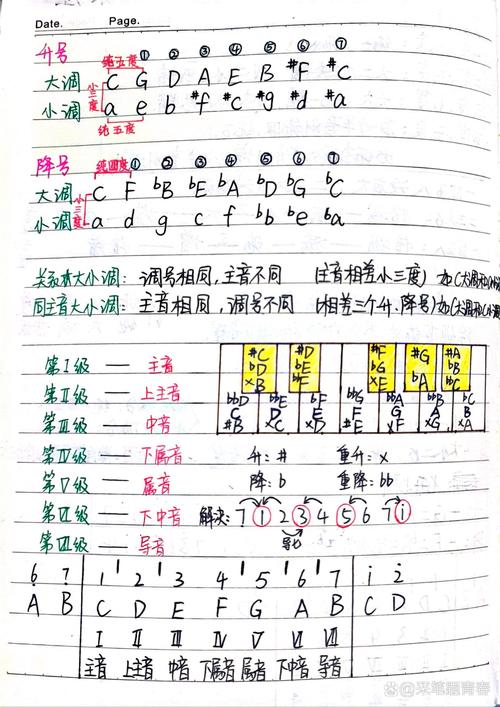 Date. Page.
升号 纯五度 ① ② ③ ④ ⑤ ⑥ ⑦
大调 C G D A E B #F #C
小三度
小调 a e b #f #c #g #d #a
纯五度
降号 纯四度 ① ② ③ ④ ⑤ ⑥ ⑦
大调 C F bB bE bA bD bG bC
小三度
小调 a d g c f bb be ba
关系大小调: 调号相同,主音不同 (主音相差小三度) 如C大调和
同主音大小调: 主音相同,调号不同 (相差三个升.降号)如C大调和C小调
第Ⅰ级 — 主音
第Ⅱ级 — 上主音
第Ⅲ级 — 中音
第Ⅳ级 — 下属音
第Ⅴ级 — 属音
第Ⅵ级 — 下中音
第Ⅶ级 — 导音
#C #D #F #G #A
bD bE bG bA bB
xB bF xE bC
bbD bbE bF bbG bbA bbB bC
C D E F G A B
#B xC xD #E xF xG xA
升: # 重升: x
降: b 重降: bb
解决: 7 1 2 3 4 5 6 7 i
导七
6 7 1 2 3 4 5 6 7 i 2
A B C D E F G A B C D
Ⅰ Ⅱ Ⅲ Ⅳ Ⅴ Ⅵ Ⅶ
主音 上主音 中音 下属音 属音 下中音 导音
@菜笔题青春